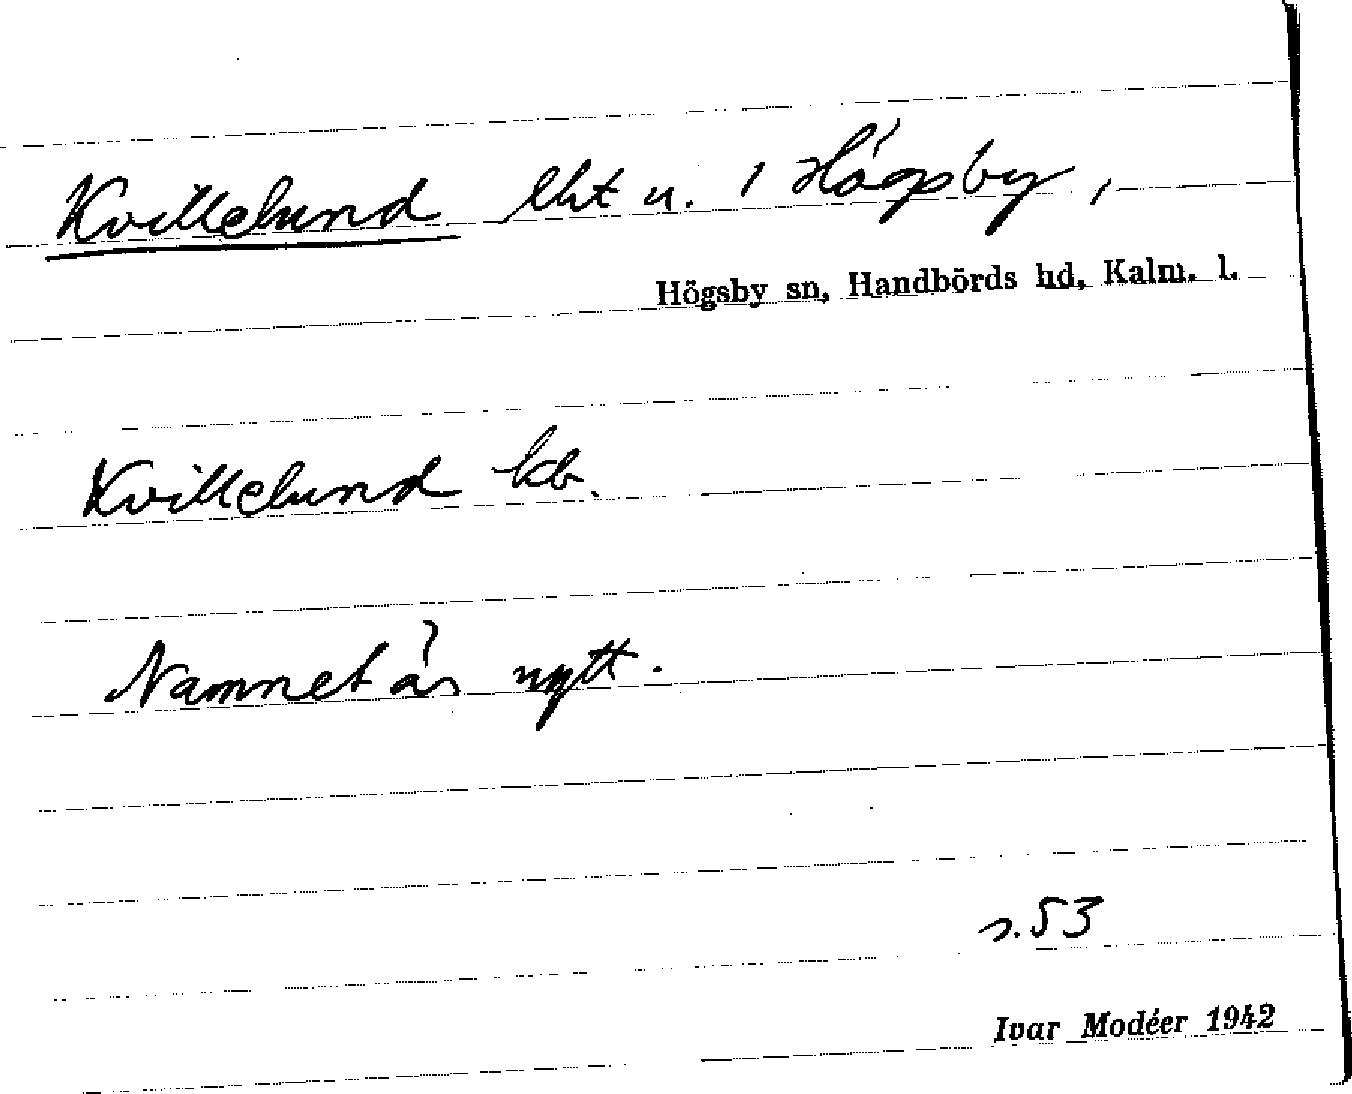 Kvillelund lht u. 1 Högsby,
Högsby sn, Handbörds hd, Kalm. l.
Kvillelund kb.
Namnet är nytt.
s. 53
Ivar Modéer 1942